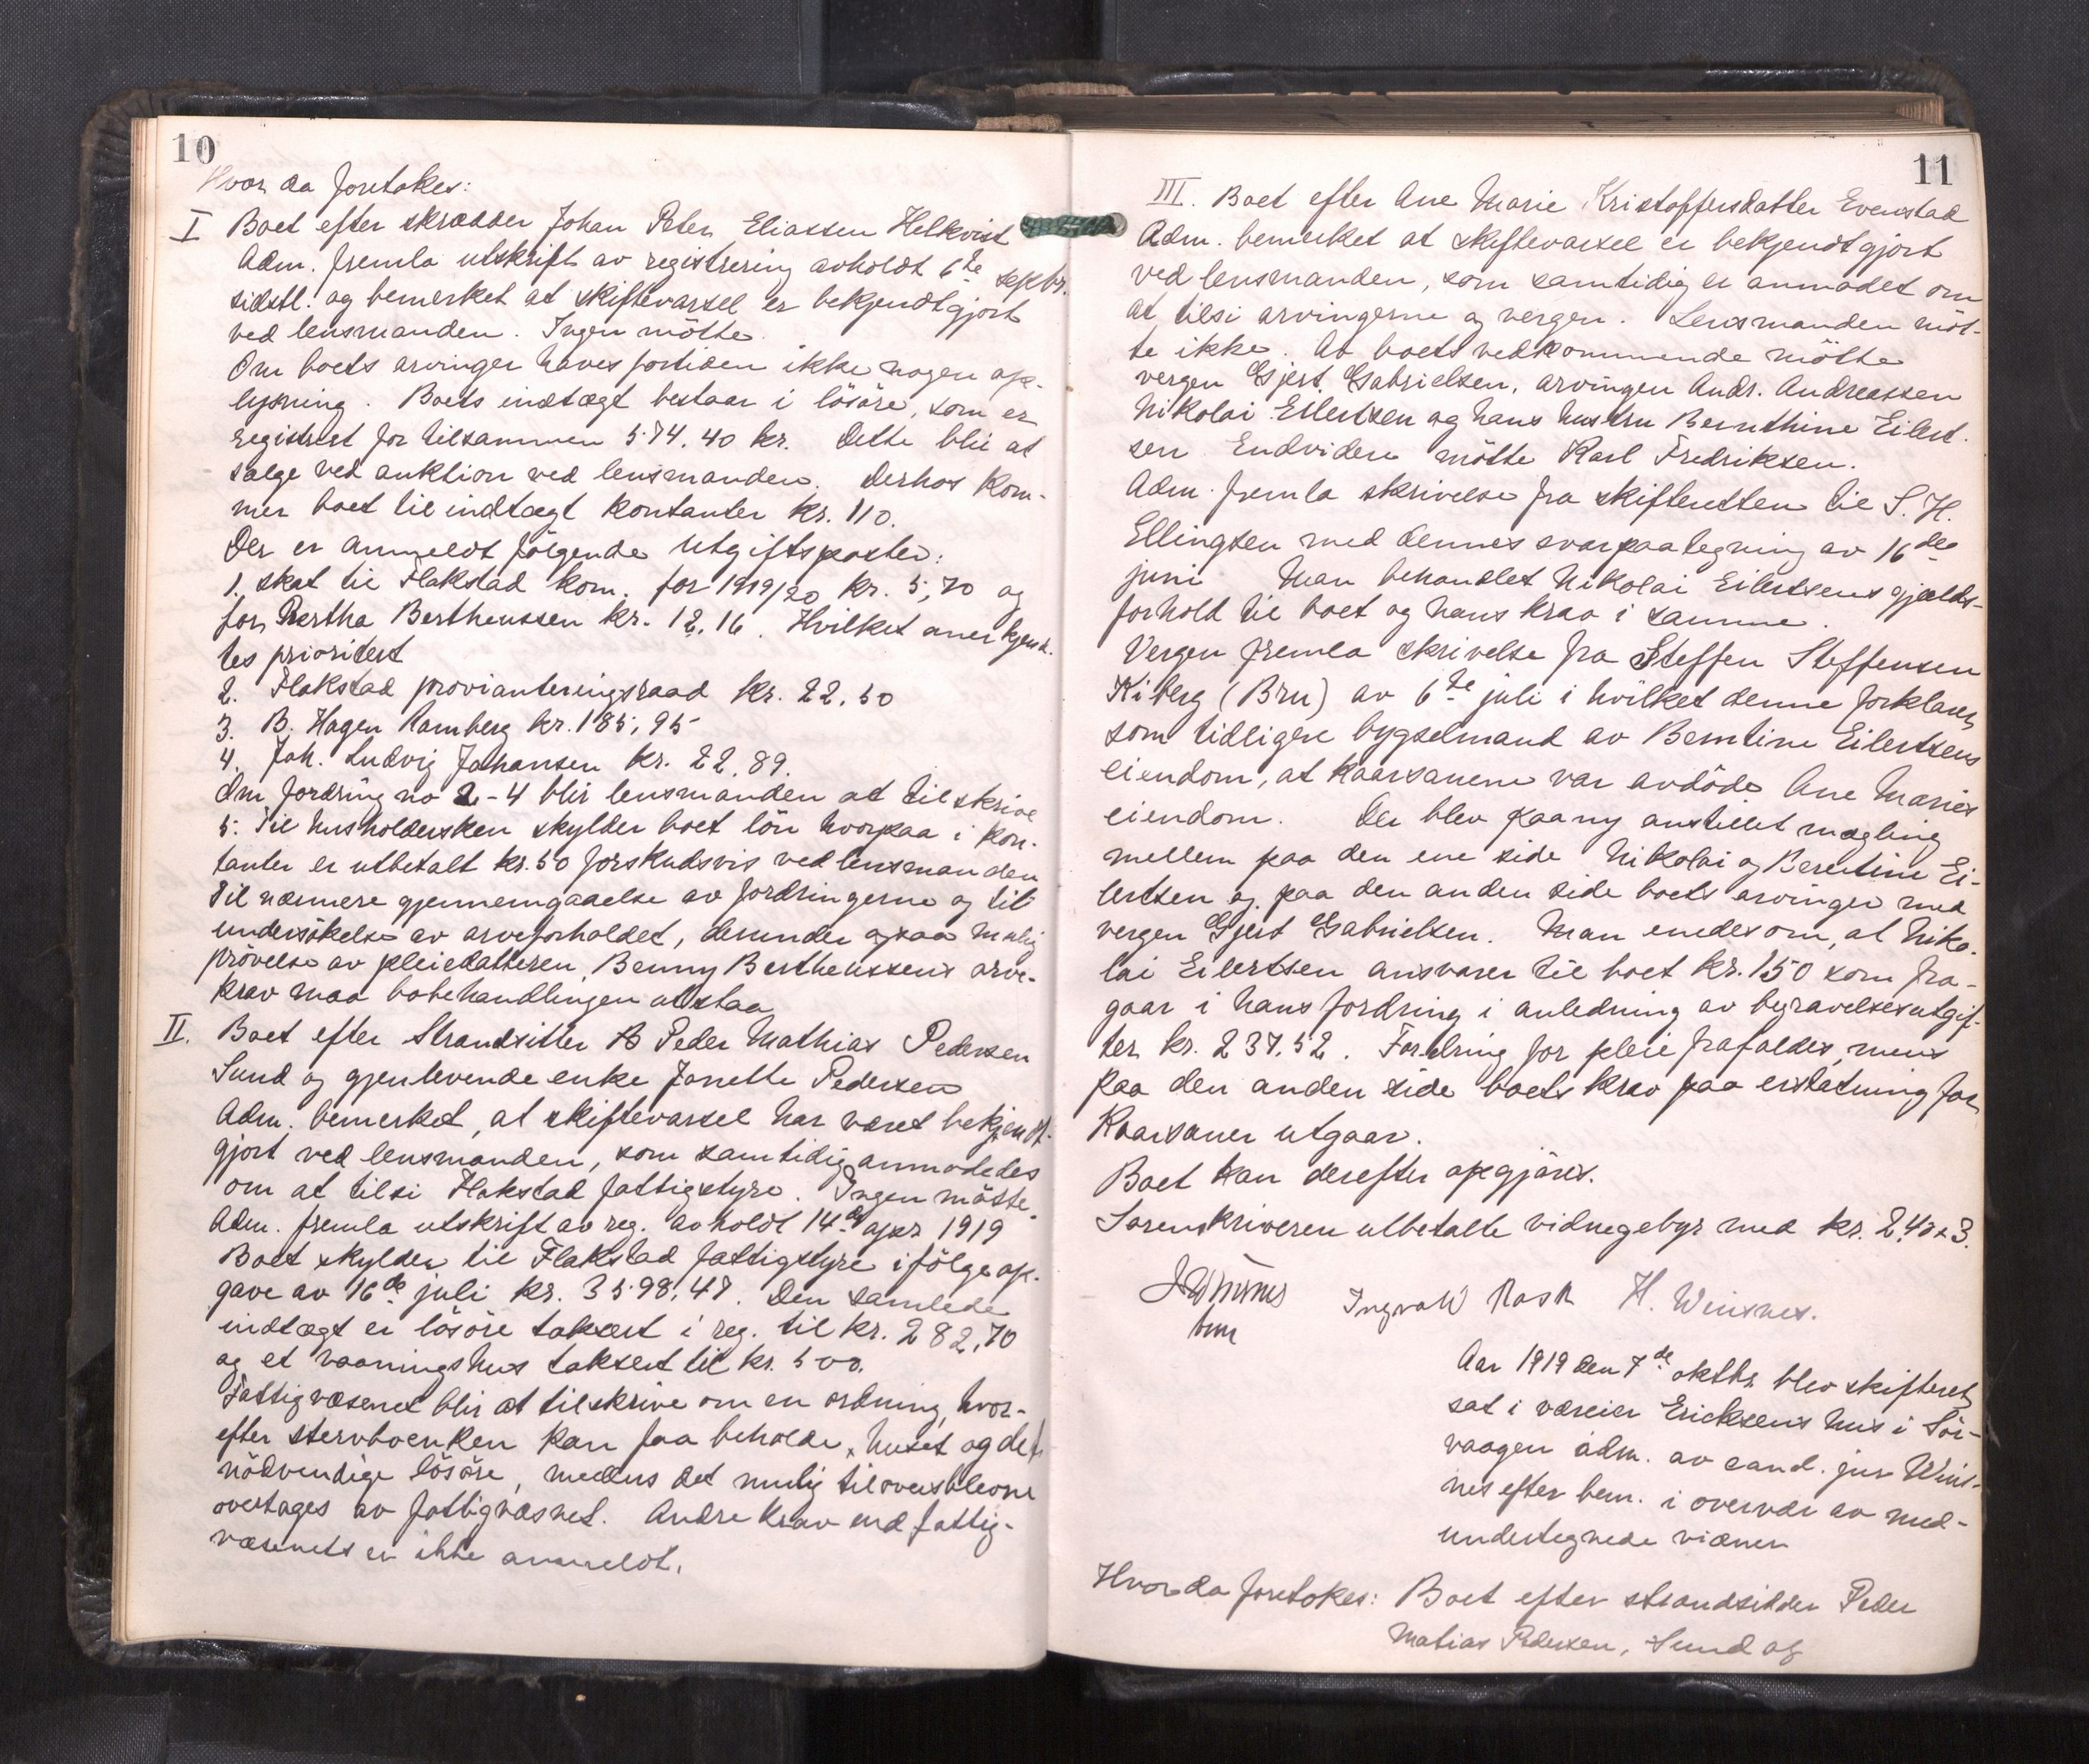 10
Hvor da foretokes:
I Boet efter skrædder Johan Peter Eliassen Helkvist
Adm. fremla utskrift av registrering avholdt 6te septbr.
sidstl. og bemerket at skiftevarsel er bekjendtgjort
ved lensmanden. Ingen mötte.
Om boets arvinger haves fortiden ikke nogen op-
lysning. Boets indtægt bestaar i lösöre, som er
registrert for tilsammen 574.40 kr. Dette blir at
sælge ved auktion ved lensmanden. Derhos kom-
mer boet til indtægt kontanter kr. 110.
Der er anmeldt fölgende utgiftsposter:
1. skat til Flakstad kom. for 1919/20 kr. 5,70 og
for Bertha Bertheussen kr. 12.16. Hvilket anerkjend-
tes prioritert
2. Flakstad provianteringsraad kr. 22.50
3. B. Hagen Ramberg kr. 185,95
4. Joh. Ludvig Johansen kr. 22.89.
Om fordring no 2-4 blir lensmanden at tilskrive
5. Til husholdersken skylder boet lön hvorpaa i kon-
tanter er utbetalt kr. 50 forskudsvis ved lensmanden
Til nærmere gjennemgaaelse av fordringerne og til
undersökelse av arveforholdet, derunder ogsaa mulig
prövelse av pleiedatteren Benny Bertheussens arve-
krav maa bobehandlingen utstaa
II. Boet efter Strandsitter Peder Mathias Pedersen
Sund og gjenlevende enke Janette Pedersen
Adm. bemerket, at skiftevarsel har været bekjendt-
gjort ved lensmanden, som samtidig anmodedes
om at tilsi Flakstad fattigstyre. Ingen mötte.
Adm. fremla utskrift av reg. avholdt 14de apr 1919
Boet skylder til Flakstad fattigstyre ifölge op-
gave av 16de juli kr. 3598.47. Den samlede
indtægt er lösöre taksert i reg. til kr. 282,70
og et vaaningshus taksert til kr. 500.
Fattigvæsenet blir at tilskrive om en ordning, hvor-
efter stervboenken kan faa beholde huset og det
nödvendige lösöre, medens det mulig tiloversblevne
overtages av fattigvæsnet. Andre krav end fattig-
væsenets er ikke anmeldt.
11
III. Boet efter Ane Marie Kristoffersdatter Evenstad
Adm. bemerket at skiftevarsel er bekjendtgjort
ved lensmanden, som samtidig er anmodet om
at tilsi arvingerne og vergen. Lensmanden möt-
te ikke. Av boets vedkommende mötte
vergen Gjert Gabrielsen, arvingen Andr. Andreassen
Nikolai Eilertsen og hans hustru Bernthine Eilert-
sen Endvidere mötte Karl Fredriksen.
Adm. fremla skrivelse fra skifteretten til S. H.
Ellingsen med dennes svarpaategning av 16de
juni Man behandlet Nikolai Eilertsens gjælds-
forhold til boet og hans krav i samme.
Vergen fremla skrivelse fra Steffen Steffensen
Kiberg (Bru) av 6te juli i hvilket denne forklarer
som tidligere bygselmand av Berntine Eilertsens
eiendom, at kaarsauene var avdöde Ane Maries
eiendom. Der blev paany anstillet mægling
mellem paa den ene side Nikolai og Berentine Ei-
lertsen og paa den anden side boets arvinger med
vergen Gjert Gabrielsen. Man enedes om, at Niko-
lai Eilertsen ansvarer til boet kr. 150 som fra-
gaar i hans fordring i anledning av begravelsesutgif-
ter kr. 237.52. Fordring for pleie frafaldes, mens
paa den anden side boets krav paa erstatning for
Kaarsauer utgaar.
Boet kan derefter opgjöres.
Sorenskriveren utbetalte vidnegebyr med kr. 2,40 x 3.
Ingvald Rask H. Weisnes.
Aar 1919 den 7de oktbr blev skifteret
sat i væreier Ericksens hus i Sör-
vaagen adm. av cand. jur Wins-
nes efter bem. i overvær av med-
undertegnede vidner
Hvor da foretokes: Boet efter strandsidder Peder
Matias Pedersen, Sund og